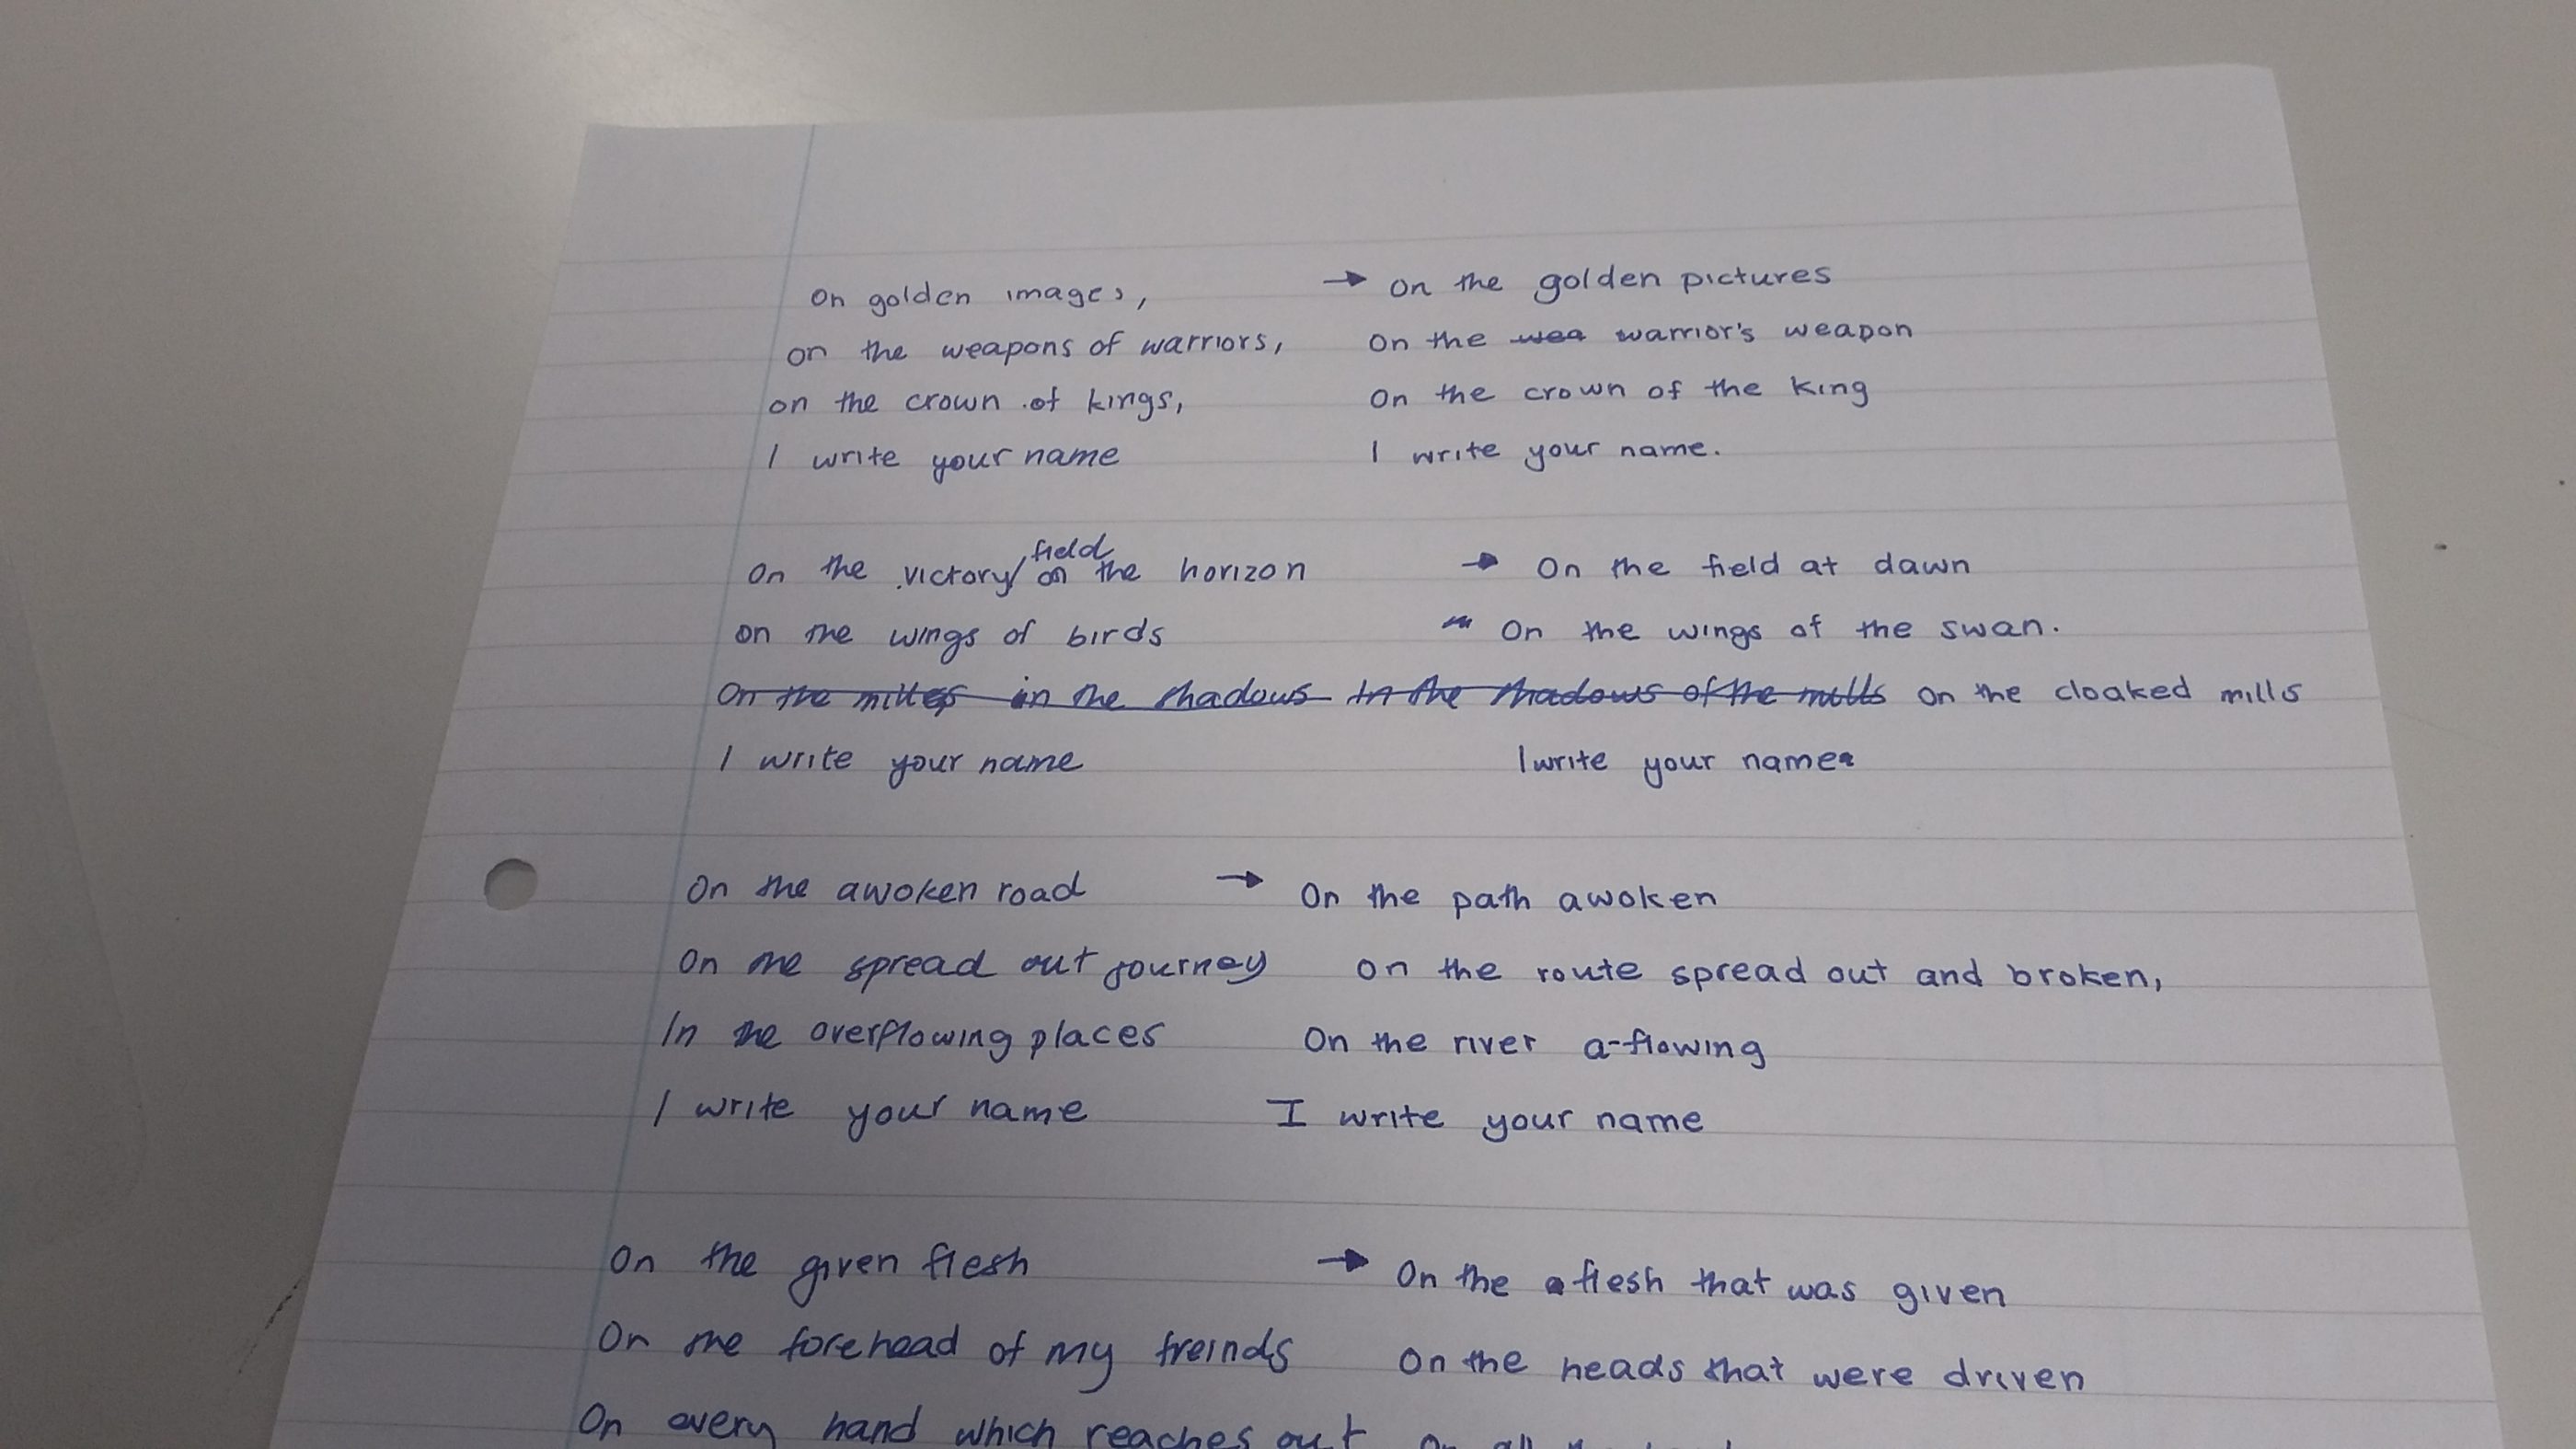 On golden images, → On the golden pictures
on the weapons of warriors, On the wea warrior's weapon
on the crown of kings, On the crown of the king
I write your name I write your name.
field
On the victory/ on the horizon → On the field at dawn
on the wings of birds On the wings of the swan.
On the milles in the shadows In the shadows of the mills on the cloaked mills
I write your name I write your name
On the awoken road → On the path awoken
On the spread out journey on the route spread out and broken,
In the overflowing places On the river a-flowing
I write your name I write your name
On the given flesh → On the flesh that was given
On the forehead of my freinds On the heads that were driven
On every hand which reaches out On all